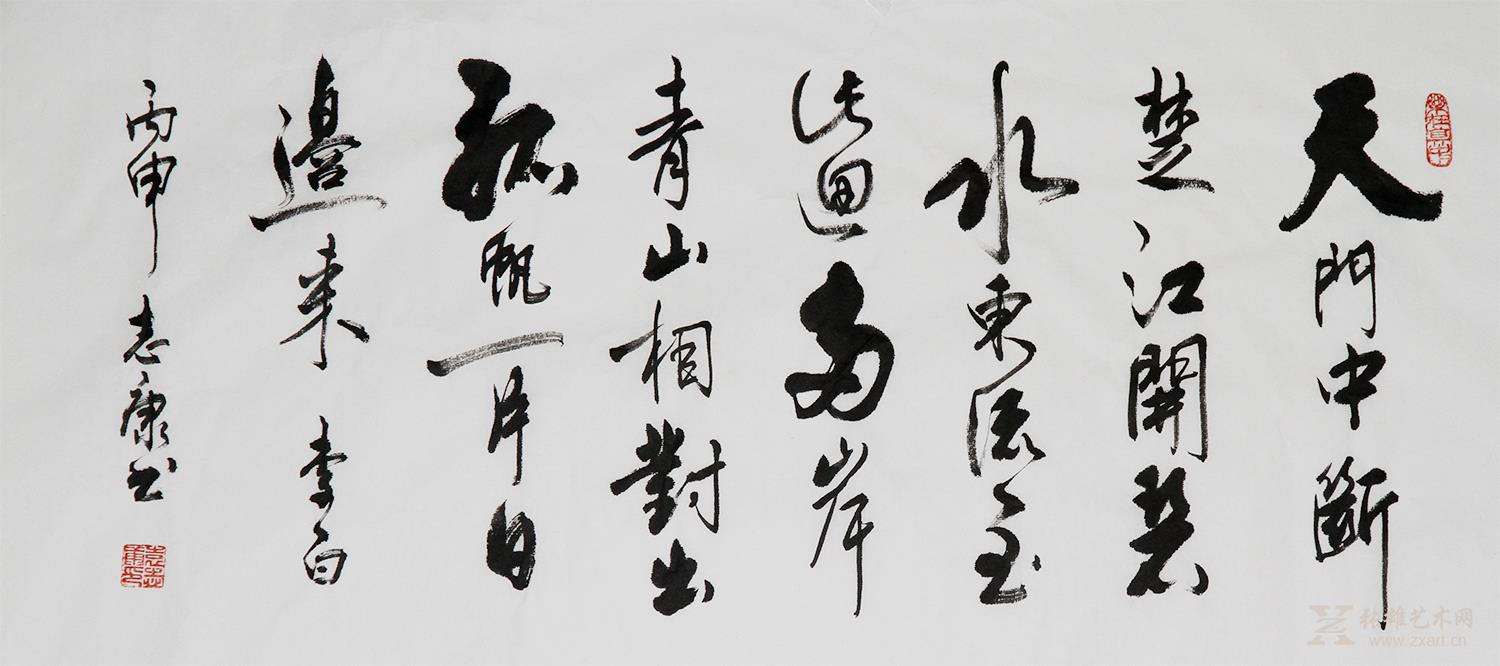 天門中斷
楚江開碧
水東流至
此迴兩岸
青山相對出
孤帆一片日
邊来 李白
丙申 志康书
张雄艺术网
www.zxart.cn